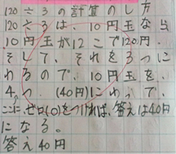 120÷3の計算のし方
120÷3は、10円玉なら
10円玉が12こで120円。
そして、それを3つに
わるので、10円玉を
4つ(40円)にわれて、
ここに、ゼロ(0)をつければ、答えは40円
になる。
答え40円